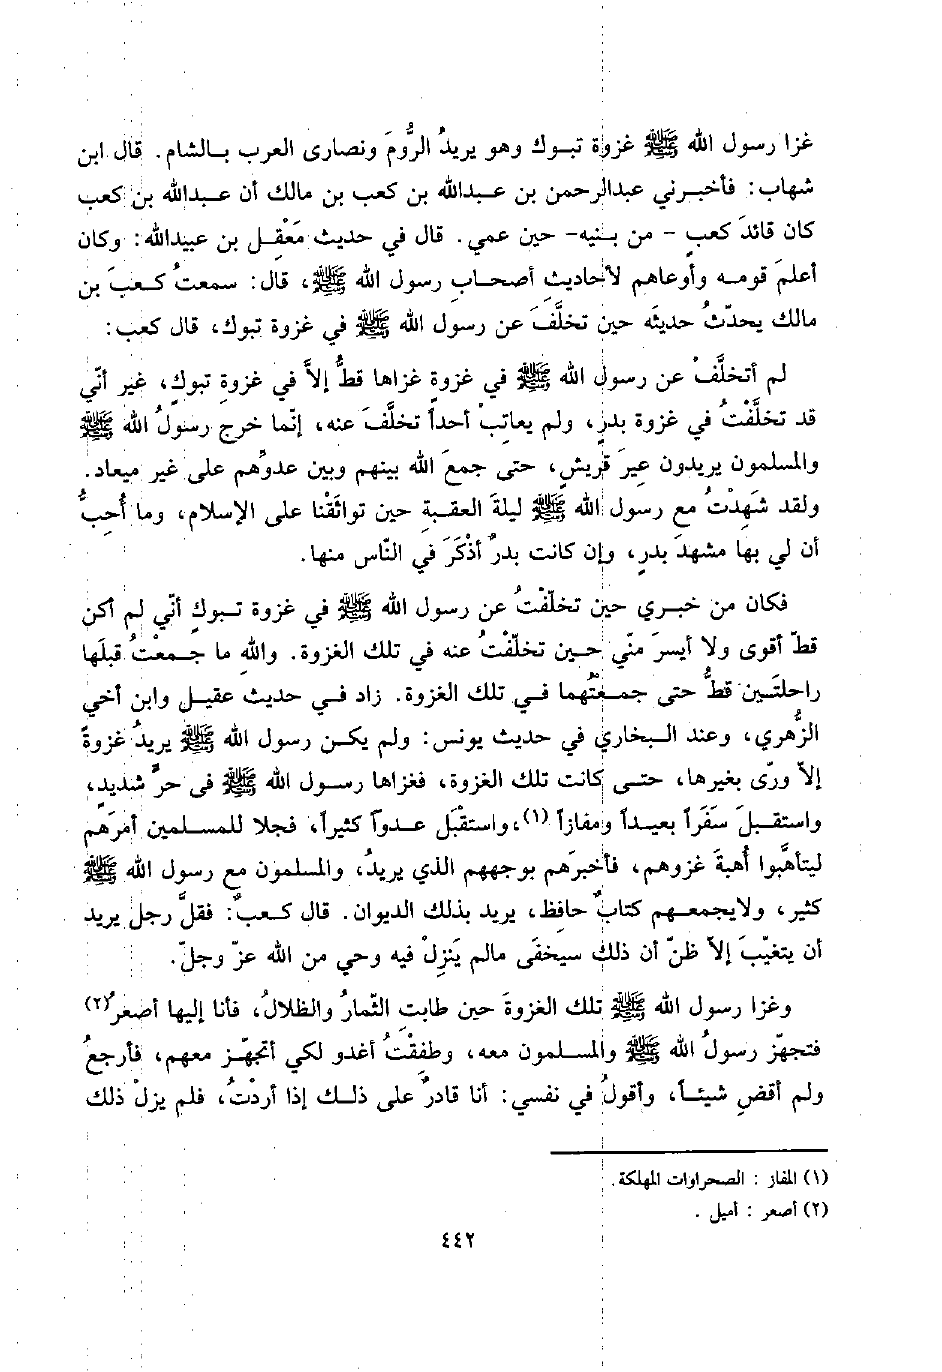 غزا رسول الله ﷺ غزوة تبوك وهو يريدُ الرُّومَ ونصارى العرب بالشام. قال ابن
شهاب: فأخبرني عبدالرحمن بن عبدالله بن كعب بن مالك أن عبدالله بن كعب
كان قائدَ كعبٍ - من بنيه- حين عمي. قال في حديث مَعْقِل بن عبيدالله: وكان
أعلمَ قومه وأوعاهم لأحاديث أصحابِ رسول الله ﷺ، قال: سمعتُ كعبَ بن
مالك يحدّثُ حديثه حين تخلَّفَ عن رسول الله ﷺ في غزوة تبوك، قال كعب:
لم أتخلَّفْ عن رسول الله ﷺ في غزوةٍ غزاها قطُّ إلاَّ في غزوةِ تبوكٍ، غير أنّي
قد تخلَّفْتُ في غزوة بدرٍ، ولم يعاتِبْ أحداً تخلَّفَ عنه، إنّما خرج رسولُ الله ﷺ
والمسلمون يريدون عِيرَ قريشٍ، حتى جمعَ الله بينهم وبين عدوِّهم على غير ميعاد.
ولقد شَهِدْتُ مع رسول الله ﷺ ليلةَ العقبةِ حين تواثَقْنا على الإسلام، وما أُحِبُّ
أن لي بها مشهدَ بدرٍ، وإن كانت بدرٌ أذْكَرَ في النّاس منها.
فكان من خبري حين تخلّفْتُ عن رسول الله ﷺ في غزوة تبوكٍ أنّي لم أكن
قطّ أقوى ولا أيسرَ منّي حين تخلّفْتُ عنه في تلك الغزوة. واللهِ ما جمعْتُ قبلَها
راحلتَين قطُّ حتى جمعْتُهما في تلك الغزوة. زاد في حديث عقيل وابن أخي
الزُّهري، وعند البخاري في حديث يونس: ولم يكن رسول الله ﷺ يريدُ غزوةً
إلاّ ورّى بغيرها، حتى كانت تلك الغزوة، فغزاها رسول الله ﷺ في حرٍّ شديدٍ،
واستقبلَ سَفَراً بعيداً ومفازاً (١)، واستقْبَل عدوّاً كثيراً، فجلا للمسلمين أمرَهم
ليتأهَّبوا أُهبةَ غزوهم، فأخبرَهم بوجههم الذي يريدُ، والمسلمون مع رسول الله ﷺ
كثير، ولايجمعهم كتابٌ حافِظ، يريد بذلك الديوان. قال كعبٌ: فقلَّ رجل يريد
أن يتغيّبَ إلاّ ظنّ أن ذلك سيخفَى مالم يَنزِلْ فيه وحي من الله عزّ وجلّ.
وغزا رسول الله ﷺ تلك الغزوةَ حين طابتِ الثّمارُ والظلالُ، فأنا إليها أصعرُ(٢)
فتجهّز رسولُ الله ﷺ والمسلمون معه، وطفِقْتُ أغدو لكي أتجهّز معهم، فأرجعُ
ولم أقضِ شيئاً، وأقولُ في نفسي: أنا قادرٌ على ذلك إذا أردْتُ، فلم يزلْ ذلك
(١) المفاز : الصحراوات المهلكة.
(٢) أصعر : أميل .
٤٤٢